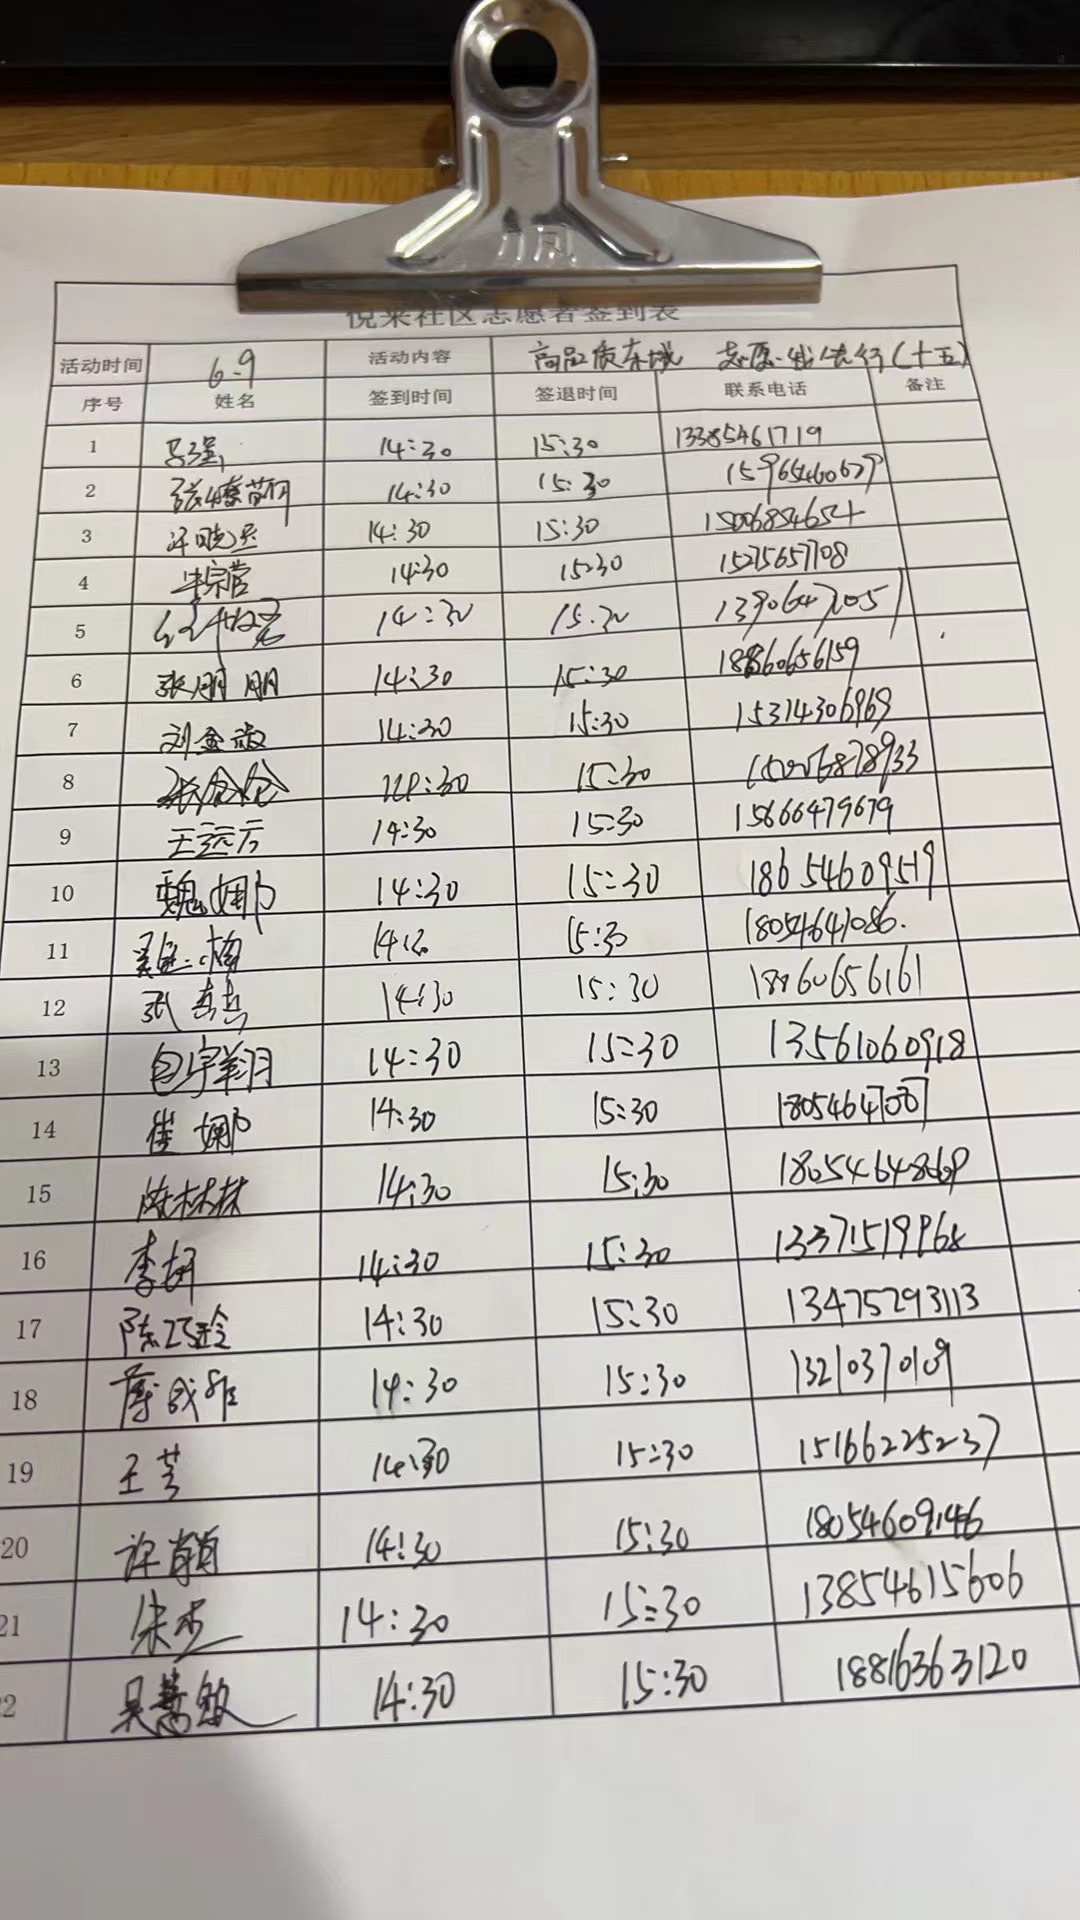 悦来社区志愿者签到表
活动时间 6.9 活动内容 高品质东城 志愿·我先行(十五)
序号 姓名 签到时间 签退时间 联系电话 备注
1 马强 14:30 15:30 13385461719
2 14:30 15:30 15965460679
3 许晓灵 14:30 15:30
4 牛宗营 14:30 15:30 15275657708
5 14:30 15:30 13906472051
6 张朋朋 14:30 15:30 18860656159
7 刘金波 14:30 15:30 15314306969
8 张伦伦 14:30 15:30 15006878933
9 王运方 14:30 15:30 15866479679
10 魏娜 14:30 15:30 18654609519
11 15:30 18054641086.
12 武吉吉 14:30 15:30 18860656161
13 包宇翔 14:30 15:30 13561060918
14 崔娜 14:30 15:30
15 陈林林 14:30 15:30 18054648869
16 李妍 14:30 15:30 13371519968
17 陈巧玲 14:30 15:30 13475293113
18 14:30 15:30 13210370109
19 王芳 14:30 15:30 15166225237
20 许娟 14:30 15:30 18054609146
21 宋杰 14:30 15:30 13854615606
22 吴慧敏 14:30 15:30 18816363120